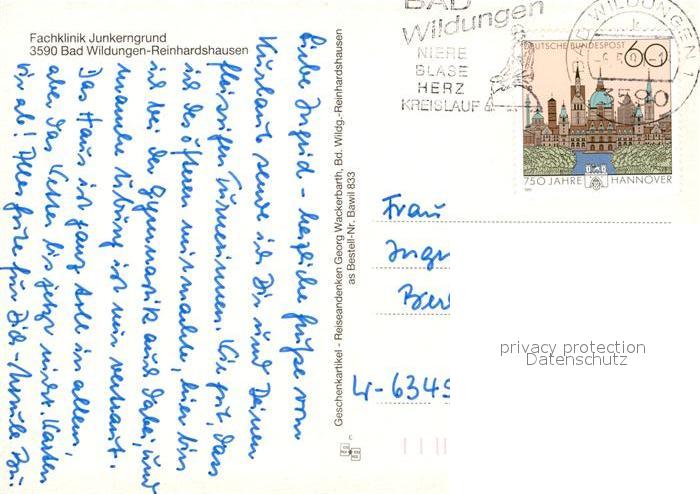 Fachklinik Junkerngrund
3590 Bad Wildungen-Reinhardshausen
Liebe Ingrid - herzliche Grüße vom
Kurlaub sende ich Dir und Deinen
fleissigen Turnerinnen. Wie gut, dass
ich des öfteren mitmache, hier bin
ich bei der Gymnastik auch dabei, und
manche Übung ist mir vertraut.
Das Haus ist ganz toll in allem,
aber das Wetter bis jetzt nicht. Warten
wir ab! Alles Gute für Dich -
Geschenkartikel - Reiseandenken Georg Wackerbarth, Bd. Wildg.-Reinhardshausen
as Bestell-Nr. Bawil 833
BAD
Wildungen
NIERE
BLASE
HERZ
KREISLAUF
BAD WILDUNGEN 1
3590
DEUTSCHE BUNDESPOST 60
750 JAHRE HANNOVER
Frau
Ingr
Ber
W-6349
privacy protection
Datenschutz